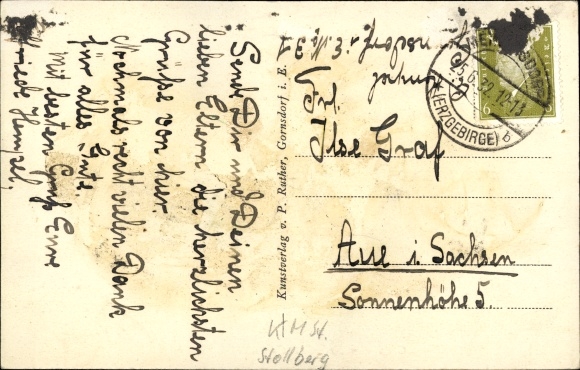 Sende Dir und Deinen
lieben Eltern die herzlichsten
Grüße von hier
Nochmals recht vielen Dank
für alles Gute.
Mit besten Gruß Eure
Friede Hempel.
Kunstverlag v. P. Ruther, Gornsdorf i. E.
Frl.
Ilse Graf
Aue i Sachsen
Sonnenhöhe 5.
(ERZGEBIRGE)
6
6
KHM St.
Stollberg